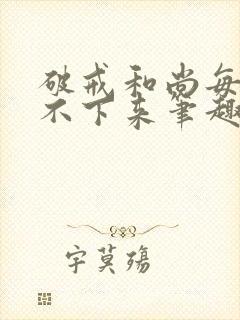 破戒和尚每
不下来笔趣
字莫殇